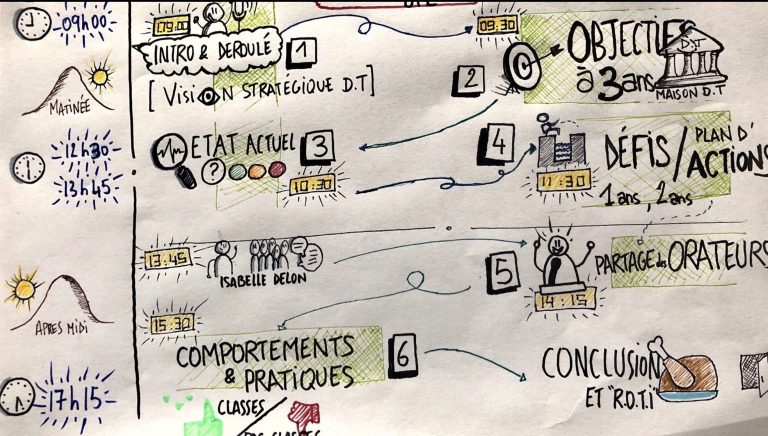 09h00
09:0
09:30
INTRO & DEROULÉ
1
[ VISION STRATÉGIQUE D.T ]
2
OBJECTIFS
à 3 ans
D.T
MAISON D.T
MATINÉE
12h30
13h45
ETAT ACTUEL
?
3
10:30
4
11:30
DÉFIS / PLAN D'
ACTIONS
1 ans, 2 ans
13:45
ISABELLE DELON
5
14:15
PARTAGE des ORATEURS
APRES MIDI
15:30
COMPORTEMENTS
& PRATIQUES
6
CLASSES
PAS CLASSES
CONCLUSION
ET "R.O.T.I"
17h15